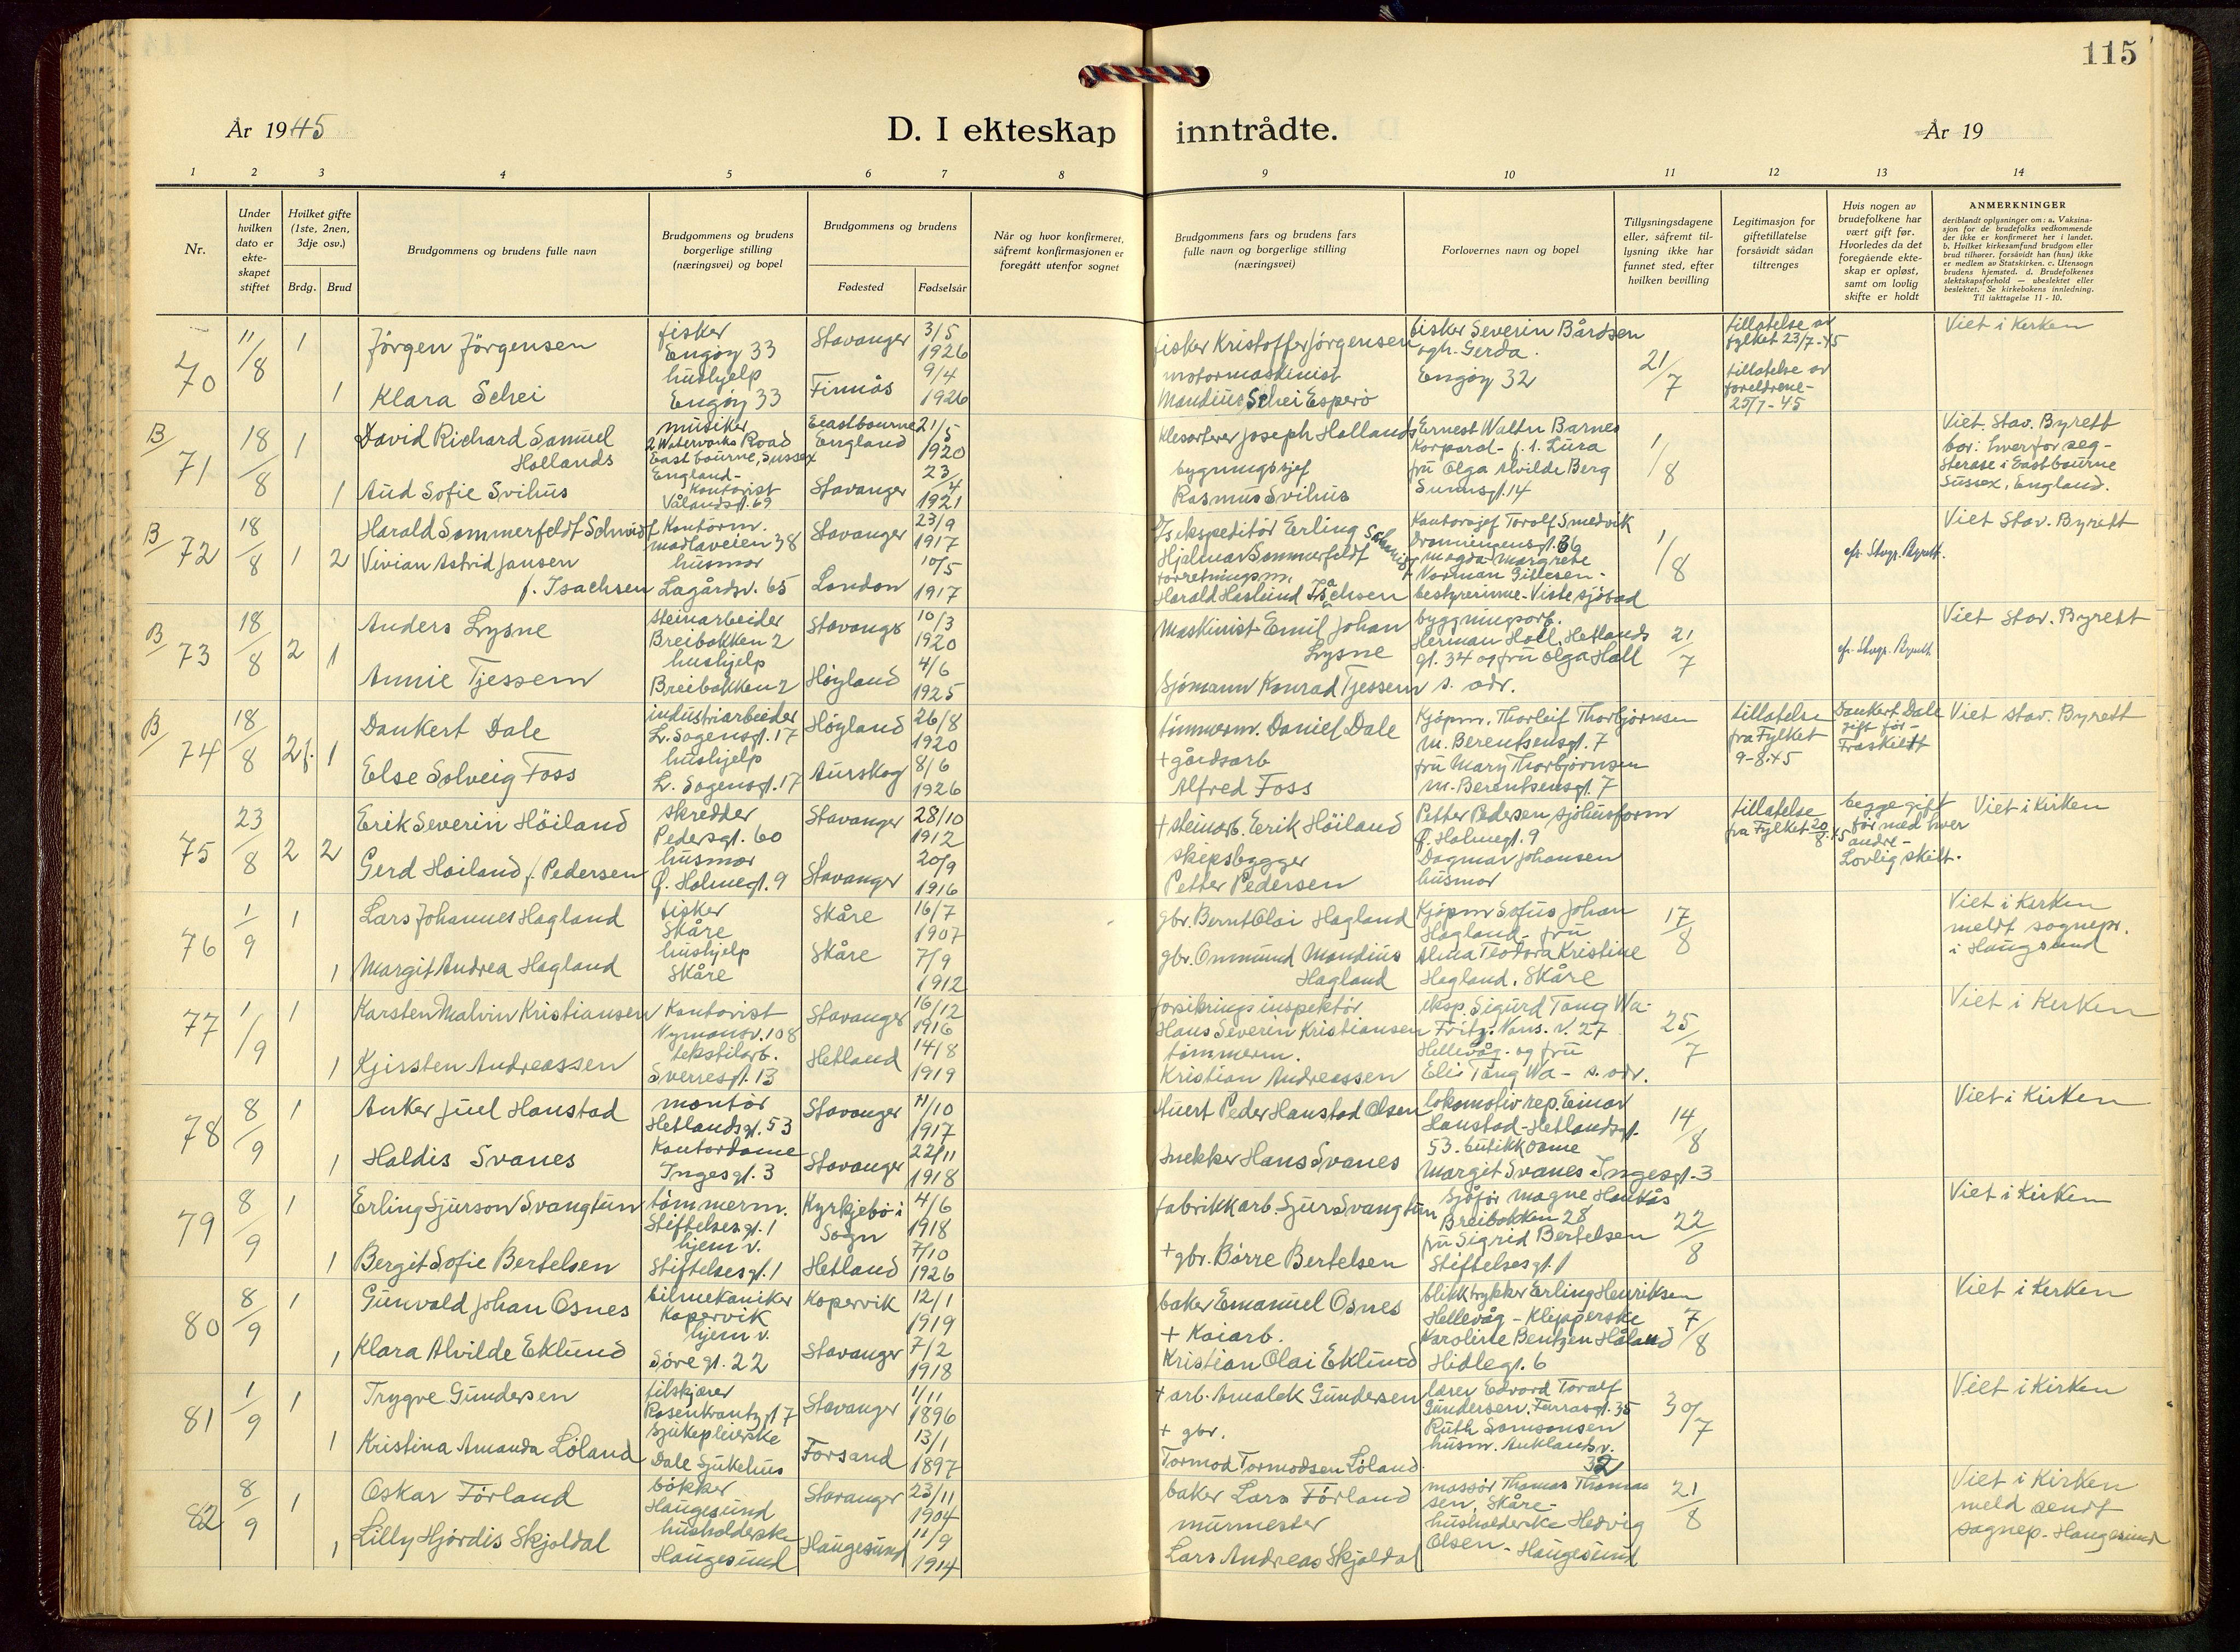 115
År 1945
D. I ekteskap inntrådte.
År 19
1 2 3 4 5 6 7 8 9 10 11 12 13 14
Nr.
Under hvilken dato er ekte-skapet stiftet
Hvilket gifte (1ste, 2nen, 3dje osv.)
Brdg.
Brud
Brudgommens og brudens fulle navn
Brudgommens og brudens borgerlige stilling (næringsvei) og bopel
Brudgommens og brudens
Fødested
Fødselsår
Når og hvor konfirmeret, såfremt konfirmasjonen er foregått utenfor sognet
Brudgommens fars og brudens fars fulle navn og borgerlige stilling (næringsvei)
Forlovernes navn og bopel
Tillysningsdagene eller, såfremt til-lysning ikke har funnet sted, efter hvilken bevilling
Legitimasjon for giftetillatelse forsåvidt sådan tiltrenges
Hvis nogen av brudefolkene har vært gift før. Hvorledes da det foregående ekte-skap er opløst, samt om lovlig skifte er holdt
ANMERKNINGER
deriblandt oplysninger om: a. Vaksina-sjon for de brudefolks vedkommende der ikke er konfirmeret her i landet. b. Hvilket kirkesamfund brudgom eller brud tilhører, forsåvidt han (hun) ikke er medlem av Statskirken. c. Utensogn brudens hjemsted. d. Brudefolkenes slektskapsforhold — ubeslektet eller beslektet. Se kirkebokens innledning. Til iakttagelse 11 - 10.
70
11/8
1
Jörgen Jörgensen
fisker
Engöy 33
Stavanger
3/5
1926
fisker Kristoffer Jörgensen
fisker Severin Bårdsen
ogh. Gerda.
Engöy 32
21/7
tillatelse av
fylket 23/7-45
tillatelse av
foreldrene-
25/7-45
Viet i Kirken
1
Klara Schei
hushjelp
Engöy 33
Finnås
9/4
1926
motormaskinist
Mandius Schei Esperö
B/
71
18/8
1
David Richard Samuel
Hollands
musiker
2 Waterworks Road
Eastbourne, Sussex
England-
Eeastbourne
England
21/5
1920
Klesorterer Joseph Hollands
Ernest Walter Barnes
Korporal- f. 1. Lura
fru Olga Alvilde Berg
Sunnsgt. 14
1/8
Viet. Stav. Byrett
bor: hverfor seg-
sterase i Eastbourne
Sussex, England.
1
Aud Sofie Svihus
Kontorist
Vålandsgt. 69
Stavanger
23/4
1921
bygningssjef
Rasmus Svihus
B/
72
18/8
1
2
Harald Sommerfeldt Schmidt
Kontorm.
Madlaveien 38
Stavanger
23/9
1917
Isekspeditör Erling
Hjalmar Sommerfeldt Schmidt
Kontorsjef Torolf Smedvik
Dronningensgt. 36
+ Magda Margrete
Norman Gillesen-
bestyrerinne-Viste sjöbad
1/8
cfr. Stvgr. Byrett.
Viet Stav. Byrett
Vivian Astrid Jansen
f. Isachsen
husmor
Lagårdsv. 65
London
10/5
1917
forretningsm.
Harald Haslund Isachsen
B/
73
18/8
2
1
Anders Lysne
steinarbeider
Breibakken 2
Stavangr
10/3
1920
Maskinist Emil Johan
Lysne
bygningsarb.
Herman Holl. Hetlands
gt. 34 og fru Olga Holl
s. adr.
21/7
cfr. Stvgr. Byrett
Viet Stav. Byrett
Annie Tjessem
hushjelp
Breibakken 2
Höyland
4/6
1925
Sjömann Konrad Tjessem
B/
74
18/8
2f.
1
Dankert Dale
industriarbeider
L. Sagensgt. 17
Höyland
26/8
1920
tömmerm. Daniel Dale
Kjöpm. Thorleif Thorbjörnsen
M. Berentsensgt. 7
fru Mary Thorbjörnsen
M. Berentsensgt. 7
tillatelse
fra Fylket
9-8.45
Dankert Dale
gift för-
Fraskilt
Viet Stav. Byrett
Else Solveig Foss
hushjelp
L. Sagensgt. 17
Aurskog
8/6
1926
+ gårdsarb
Alfred Foss
75
23/8
2
2
Erik Severin Höiland
skredder
Pedersgt. 60
Stavanger
28/10
1912
+ steinarb. Erik Höiland
Petter Pedersen sjöhusform
Q. Holmegt. 9
Dagmar Johansen
husmor
tillatelse
fra Fylket 20/8.45
begge gift
för med hver
andre-
Lovlig skilt.
Viet i Kirken
Gerd Höiland f. Pedersen
husmor
Q. Holmegt. 9
Stavanger
20/9
1916
skipsbygger
Petter Pedersen
76
1/9
1
Lars Johannes Hagland
fisker
Skåre
Skåre
16/7
1907
gbr. Bernt Olai Hagland
Kjöpm Sofus Johan
Hagland- fru
Alma Teodora Kristine
Hagland. Skåre
17/8
Viet i Kirken
meldt sognepr.
i Haugesund
1
Margit Andrea Hagland
hushjelp
Skåre
Skåre
7/9
1912
gbr. Ommund Mandius
Hagland
77
1/9
1
Karsten Malvin Kristiansen
Kontorist
Nymansv. 108
Stavanger
16/12
1916
forsikringsinspektör
Hans Severin Kristiansen
eksp. Sigurd Tang Wa-
Fritz. Nans. v. 27
Hellevåg. og fru
Elis Tang Wa- s. adr.
25/7
Viet i Kirken
1
Kjirsten Andreassen
tekstilarb.
Sverresgt. 13
Hetland
14/8
1919
tömmerm.
Kristian Andreassen
78
8/9
1
Anker Juel Hanstad
montör
Hetlandsgt. 53
Stavanger
11/10
1917
Stuert Peder Hanstad Olsen
lokomotiv rep. Einar
Hanstad-Hetlandsgt.
53. butikkdame
Margit Svanes Ingesgt. 3
14/8
Viet i Kirken
1
Haldis Svanes
Kontordame
Ingesgt. 3
Stavanger
22/11
1918
Snekker Hans Svanes
79
8/9
1
Erling Sjurson Svangtun
tömmerm.
Stiftelsesgt. 1
Kyrkjebö i
Sogn
4/6
1918
fabrikkarb. Sjur Svangtun
Sjåför Magne Haukås
Breibakken 28
fru Sigrid Bertelsen
Stiftelsesgt. 1
22/8
Viet i Kirken
1
Bergit Sofie Bertelsen
hjem v.
Stiftelsesgt. 1
Hetland
7/10
1926
+ gbr. Börre Bertelsen
80
8/9
1
Gunvald Johan Osnes
bilmekaniker
Kopervik
Kopervik
12/1
1919
baker Emanuel Osnes
blikktrykker Erling Henriksen
Hellevåg- Klipperske
Karoline Bentzen Håland
Hidlegt. 6
7/8
Viet i Kirken
1
Klara Alvilde Eklund
hjem v.
Söregt. 22
Stavanger
7/2
1918
+ Kaiarb.
Kristian Olai Eklund
81
1/9
1
Trygve Gundersen
tilskjærer
Rosenkrantzgt 7
Stavanger
1/11
1896
+ arb. Amalek Gundersen
lærer Edvard Toralf
Gundersen. Furrasgt. 35
Ruth Samsonsen
husm. Auklandsv.
32
30/7
Viet i Kirken
1
Kristina Amanda Löland
Sjukepleierske
Dale Sjukehus
Forsand
13/1
1897
+ gbr.
Tormod Tormodsen Löland
82
8/9
1
Oskar Förland
bökker
Haugesund
Stavanger
23/11
1904
baker Lars Förland
massör Thomas Thomas
sen, Skåre-
husholderske Hedvig
Olsen- Haugesund
21/8
Viet i Kirken
meld sendt
sognep. Haugesund
1
Lilly Hjördis Skjoldal
husholderske
Haugesund
Haugesund
11/9
1914
murmester
Lars Andreas Skjoldal